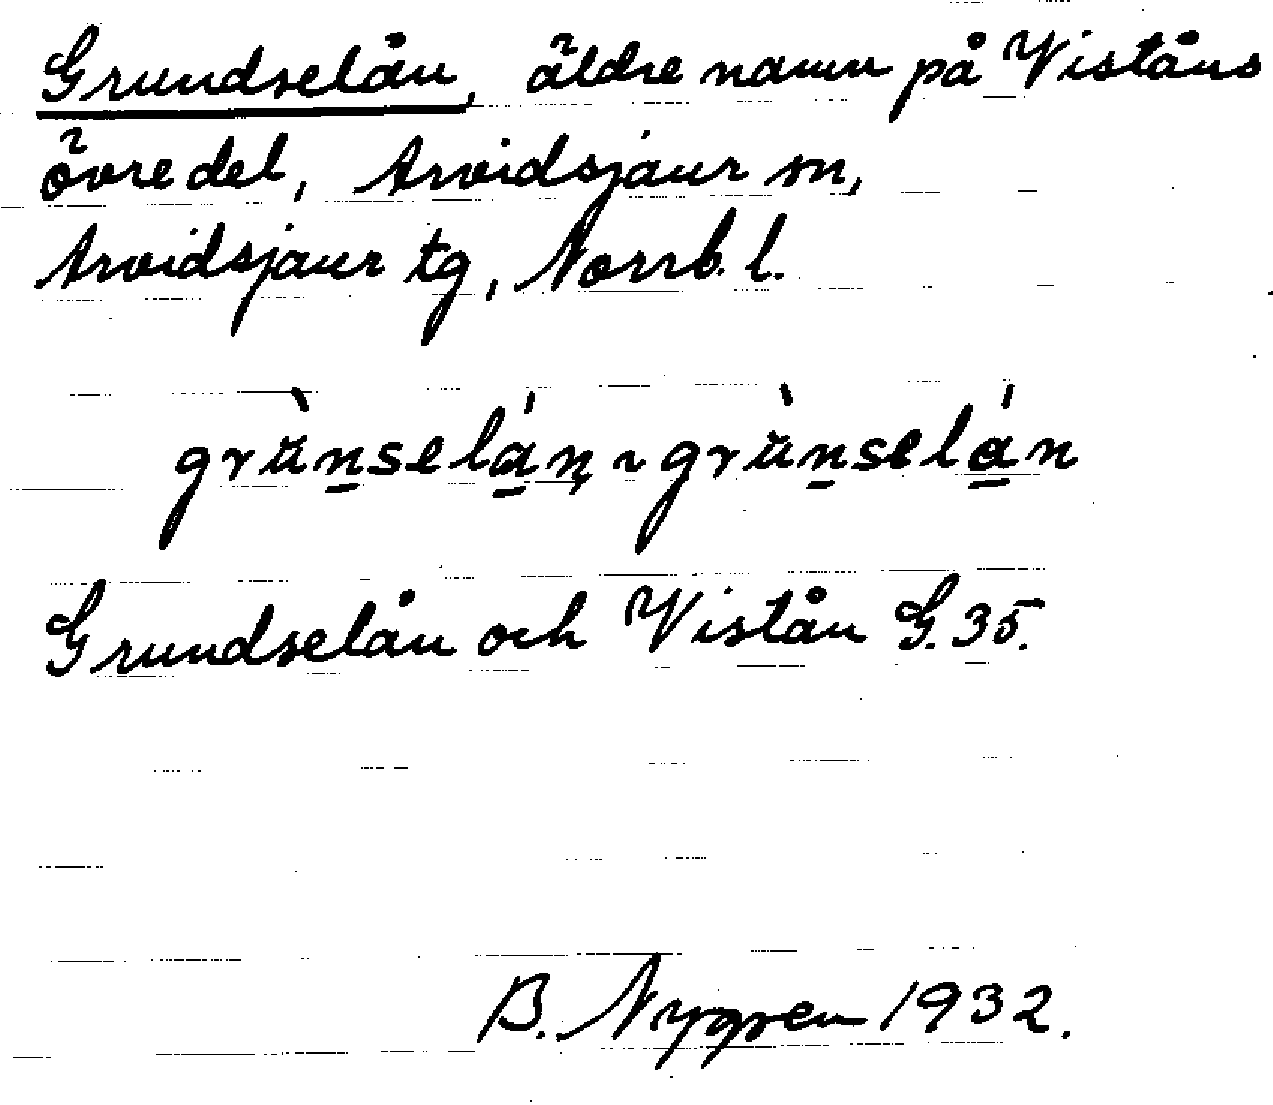 Grundselån, äldre namn på Viståns
övre del, Arvidsjaur sn,
Arvidsjaur tg, Norrb. l.
grùn̠selá̠n ~ grùn̠selá̠n
Grundselån och Vistån G. 35.
B. Nygren 1932.